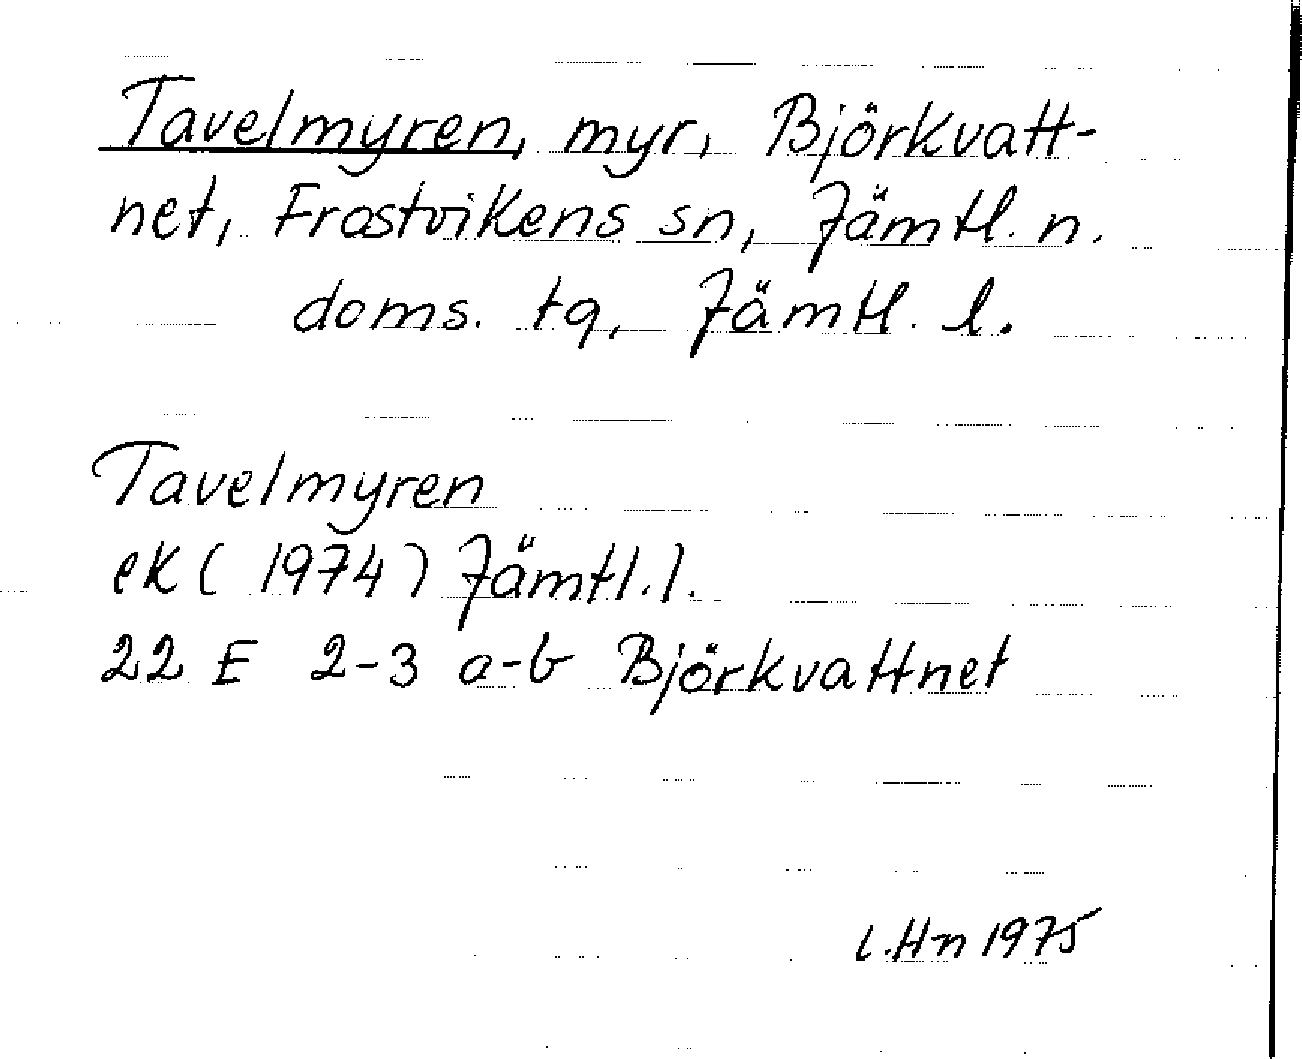 Tavelmyren, myr, Björkvatt-
net, Frostvikens sn, Jämtl. n.
doms. tg, Jämtl. l.
Tavelmyren
ek (1974) Jämtl. l.
22 E 2-3 a-b Björkvattnet
L.Hn 1975